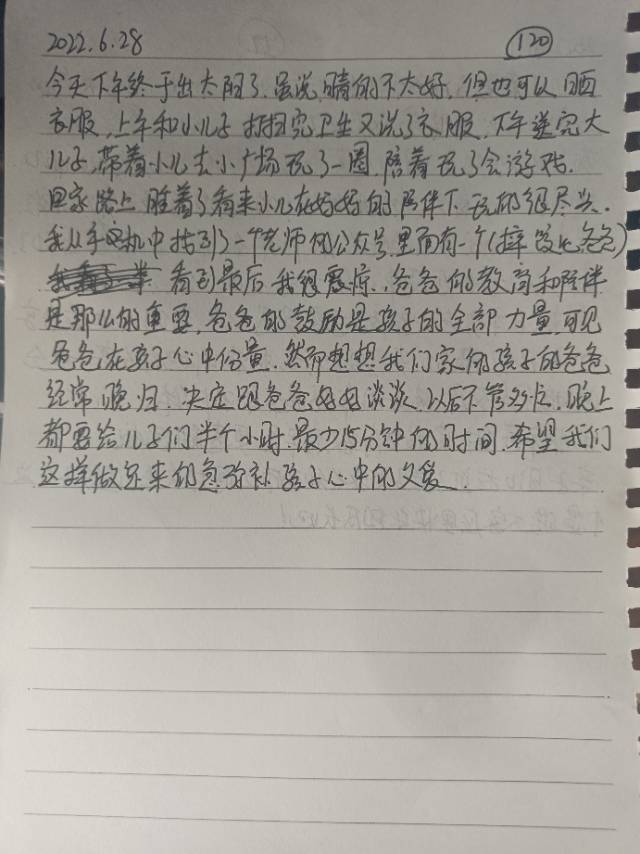 2022.6.28 120
今天下午终于出太阳了.虽说晴的不太好.但也可以晒
衣服,上午和小儿子打扫完卫生又洗了衣服.下午送完大
儿子,带着小儿去小广场玩了一圈.陪着玩了会游戏.
回家路上睡着了看来小儿在妈妈的陪伴下玩的很尽兴.
我从手机中找到了一个老师的公众号里面有一个(摔跤吧爸爸)
看到最后我很震惊.爸爸的教育和陪伴
是那么的重要.爸爸的鼓励是孩子的全部力量.可见
爸爸在孩子心中份量.然而想想我们家的孩子的爸爸
经常晚归.决定跟爸爸好好谈谈.以后不管多忙.晚上
都要给儿子们半个小时.最少15分钟的时间.希望我们
这样做还来的急弥补孩子心中的父爱.